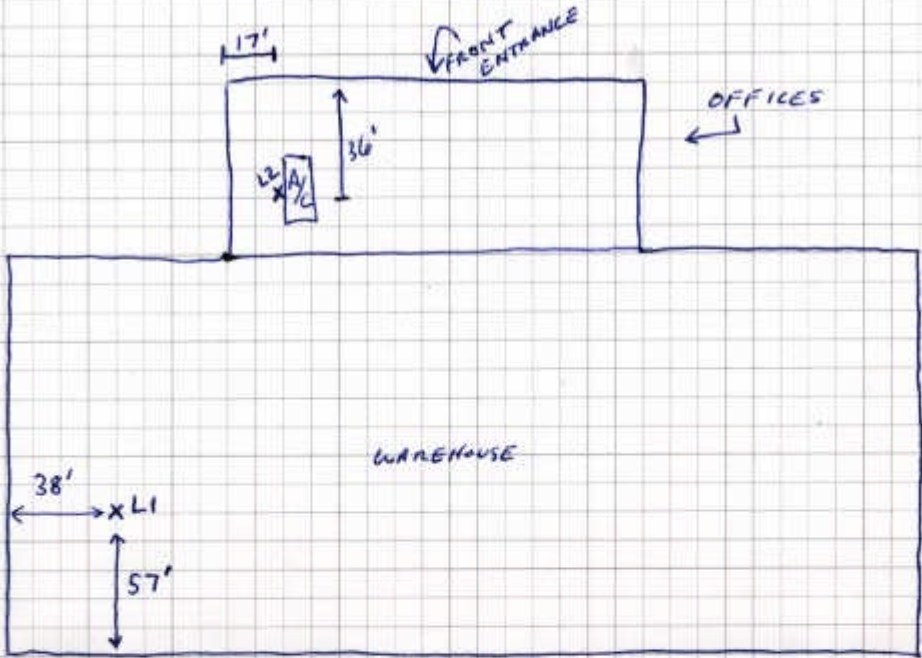 17'
FRONT
ENTRANCE
OFFICES
36'
L2
A/C
WAREHOUSE
38'
L1
57'